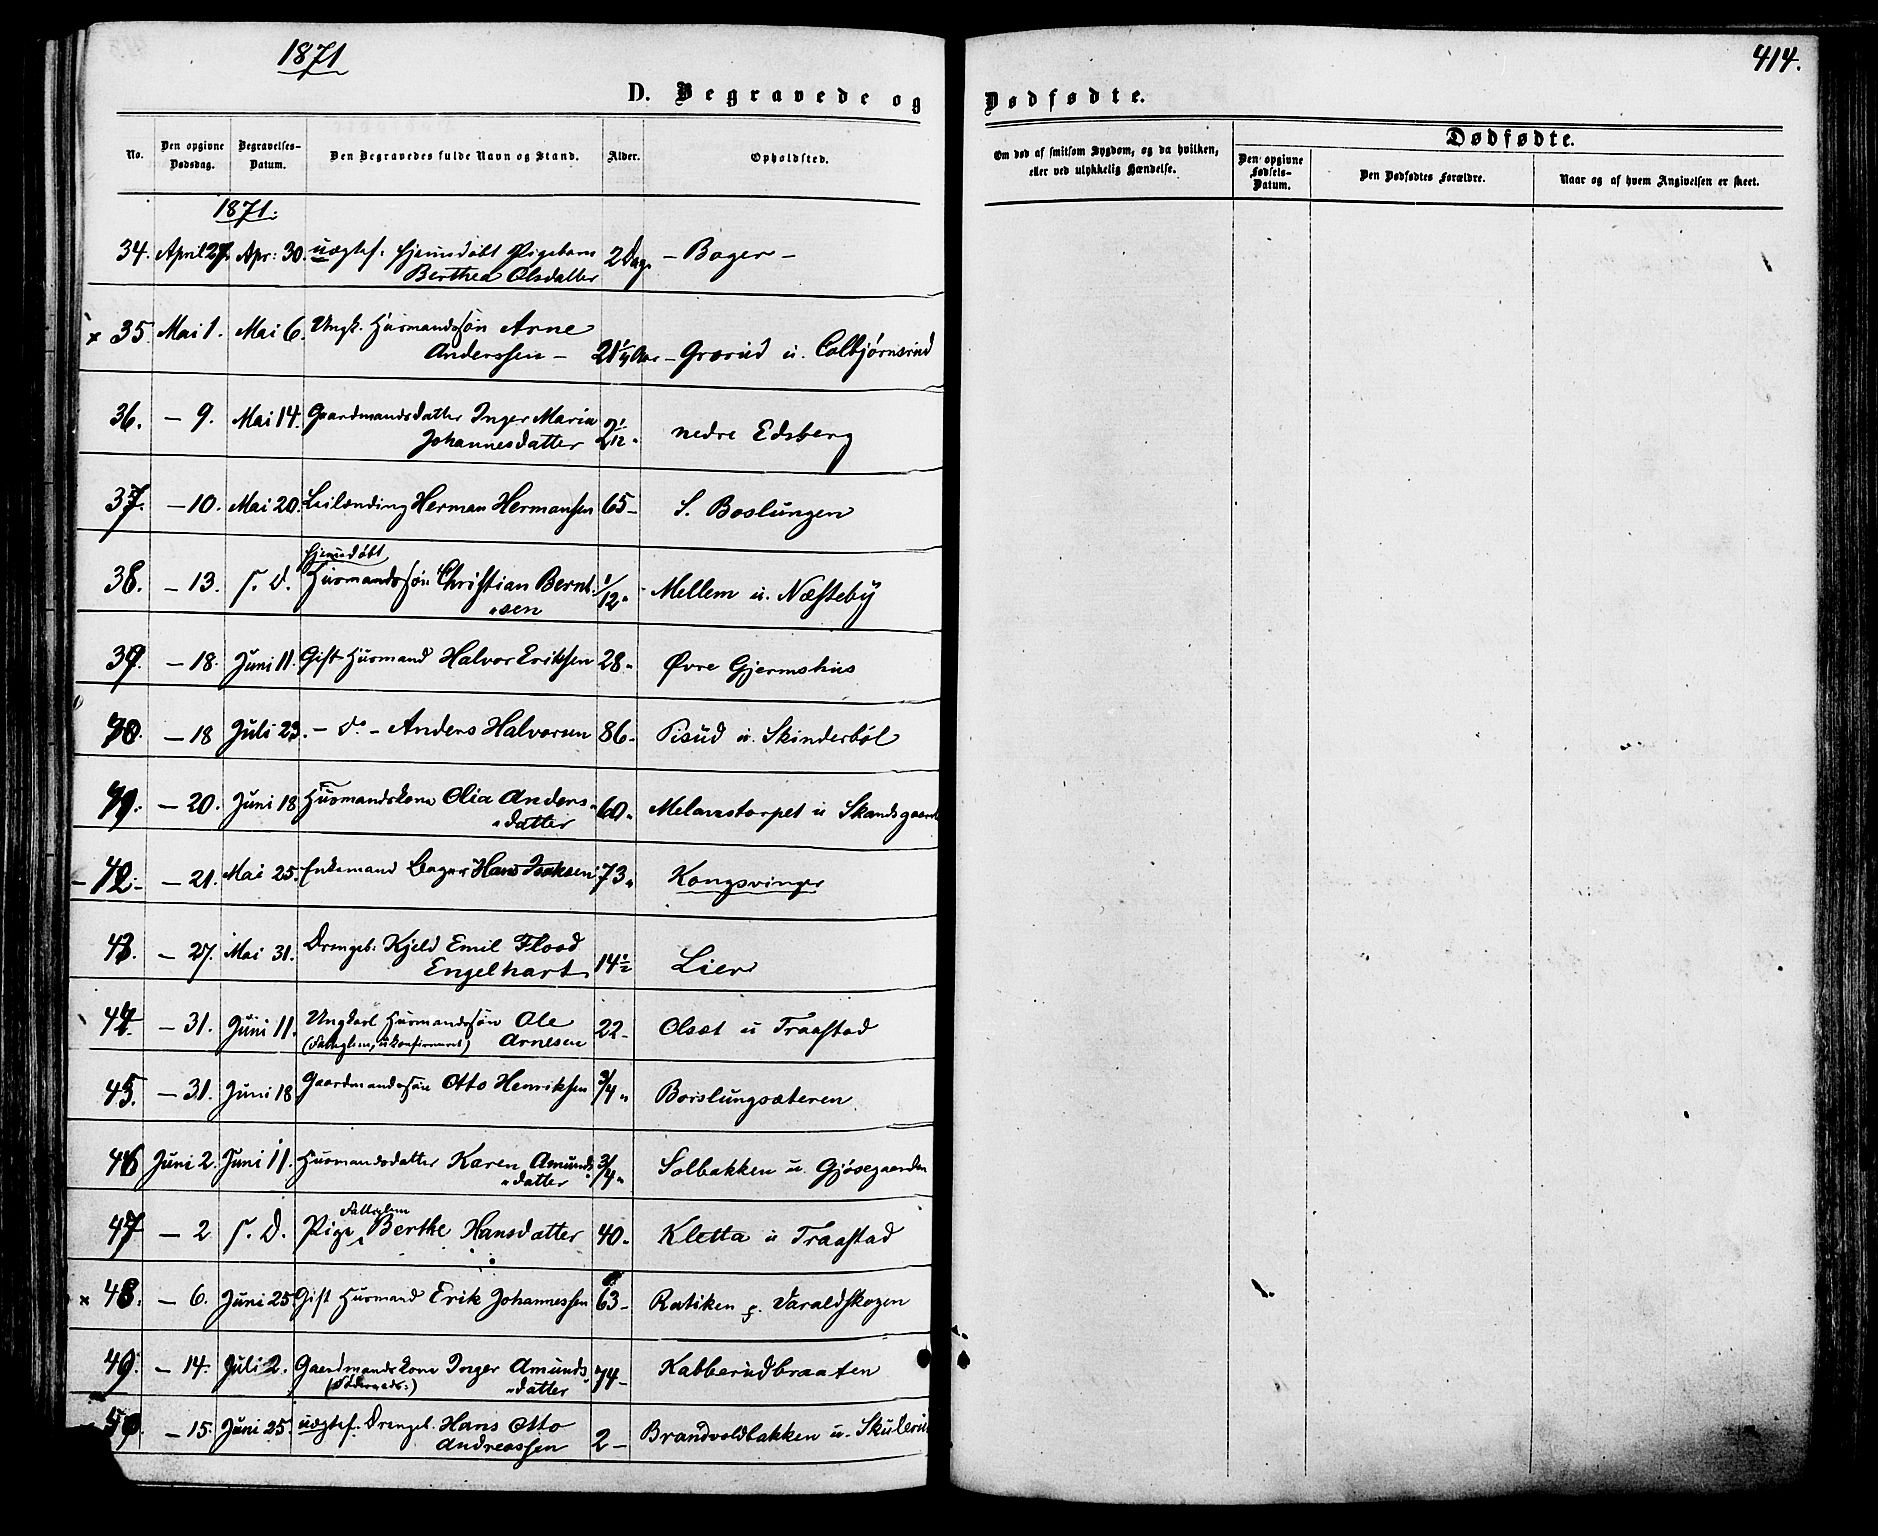 1871
414.
D. Begravede og Dødfødte.
No. Den opgivne Dødsdag. Begravelses-Datum. Den Begravedes fulde Navn og Stand. Alder. Opholdsted. Om død af smitsom Sygdom, og da hvilken, eller ved ulykkelig Hændelse. Dødfødte.
Den opgivne Fødsels-Datum. Den Dødfødtes Forældre. Naar og af hvem Angivelsen er skeet.
1871.
34. April 27. Apr: 30. uægtef. hjemdøbt Pigebarn
Berthea Olsdatter 2 Dag. - Boger -
x 35 Mai 1. Mai 6. Ungk. Husmandssøn Arne
Anderssen - 21 1/4 Aar - Grorud u. Colbjørnsrud
36. - 9. Mai 14. Gaardmandsdatter Inger Maria
Johannesdatter 2 1/12 " nedre Edsberg
37. - 10. Mai 20. Leilænding Herman Hermansen 65 - S. Boslungen
hjemdøbt
38. - 13. s. D. Husmandssøn Christian Bernt-
"sen 1/12 " Mellem u. Næsteby
39. - 18. Juni 11. Gift Husmand Halvor Eriksen 28 " Øvre Gjermshus
40. - 18 Juli 23. - do - Anders Halvorsen 86 - Pisud u. Skinderbøl
41. - 20. Juni 18 Husmandskone Olia Anders-
"datter 60 " Melavstorpet u Skandsgaard
- 42 - - 21. Mai 25. Enkemand Bager Hans Isaksen 73 " Kongsvinger
43. - 27. Mai 31. Drengeb: Kjeld Emil Flood
Engelhart 14 1/2 Lier
44. - 31. Juni 11. Ungkarl Husmandssøn Ole
(Fattiglem, ukonfirmeret) Arnesen 22 - Olset u Traastad
45. - 31. Juni 18 Gaardmandssøn Otto Henriksen 3/4 " Boislungsæteren
46 Juni 2. Juni 11. Husmandsdatter Karen Amunds-
"datter 3/4 " Solbakken u. Gjøsegaarden
Fattiglem
47 - 2 s. D. Pige Berthe Hansdatter 40 - Kletta u Traastad
x 48. - 6. Juni 25 Gift Husmand Erik Johannessen 63 - Ratiken p. Varaldskogen
49. - 14. Juli 2. Gaardmandskone Inger Amunds-
"datter 74 - Kabberudbraaten
50. - 15. Juni 25. uægtef. Drengeb. Hans Otto
Andreassen 2 - Brandvoldbakken u. Skulerud